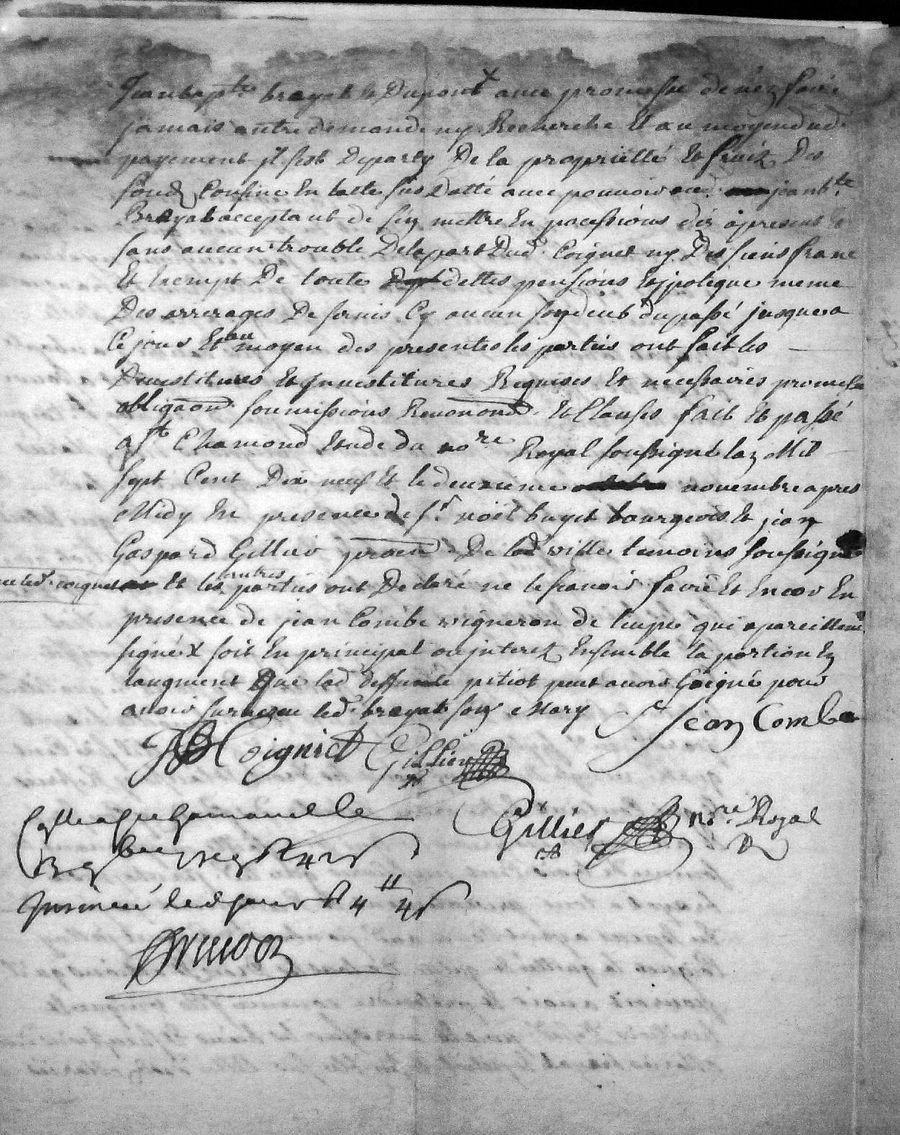 Jeanbapte brayat & Dupont x avec promesse de n'en faire
jamais autre demande ny Recherche Et au moyen dud
payement Il sest Departy De la proprietté et fruix Des
fond Confine En lacte sus datté avec pouvoir aud jean bte
Brayat acceptant de sen mettre En pocessions dez apresent &
sans aucun trouble De la part Dud Coignet ny Des siens franc
Et Exempt De toute dettes pensions Et ypoteque meme
Des arrerages De servis Cy aucun sondeub du passé jusques a
Ce jour Et au moyen des presentes les parties ont fait les
Devestitures Et Investitures Requises Et necessaires promes
obligaon soumissions Renonond Et Clauses fait Et passé
a St Chamond Etude du nore Royal soussigné lan Mil
sept Cent Dix neuf Et le deuxieme novembre apres
Midy En presence de sr noel buyet bourgeois Et jean
Gaspard Gillier De lad ville temoins soussignes
led Coignet Et les autres parties ont Declaré ne le scavoir faire Et Encor En
presence de jean Combe vigneron de lupe qui a pareillemt
signé x soit En principal ou interez Ensemble la portion En
laugment que lad deffunte pitiot peut avoir Gaigné pour
avoir survecu led brayat son Mary
Jean Combe
JB Coignet Gillier
Gillier nore Royal
Insinué le d jour 4 ll 4 s